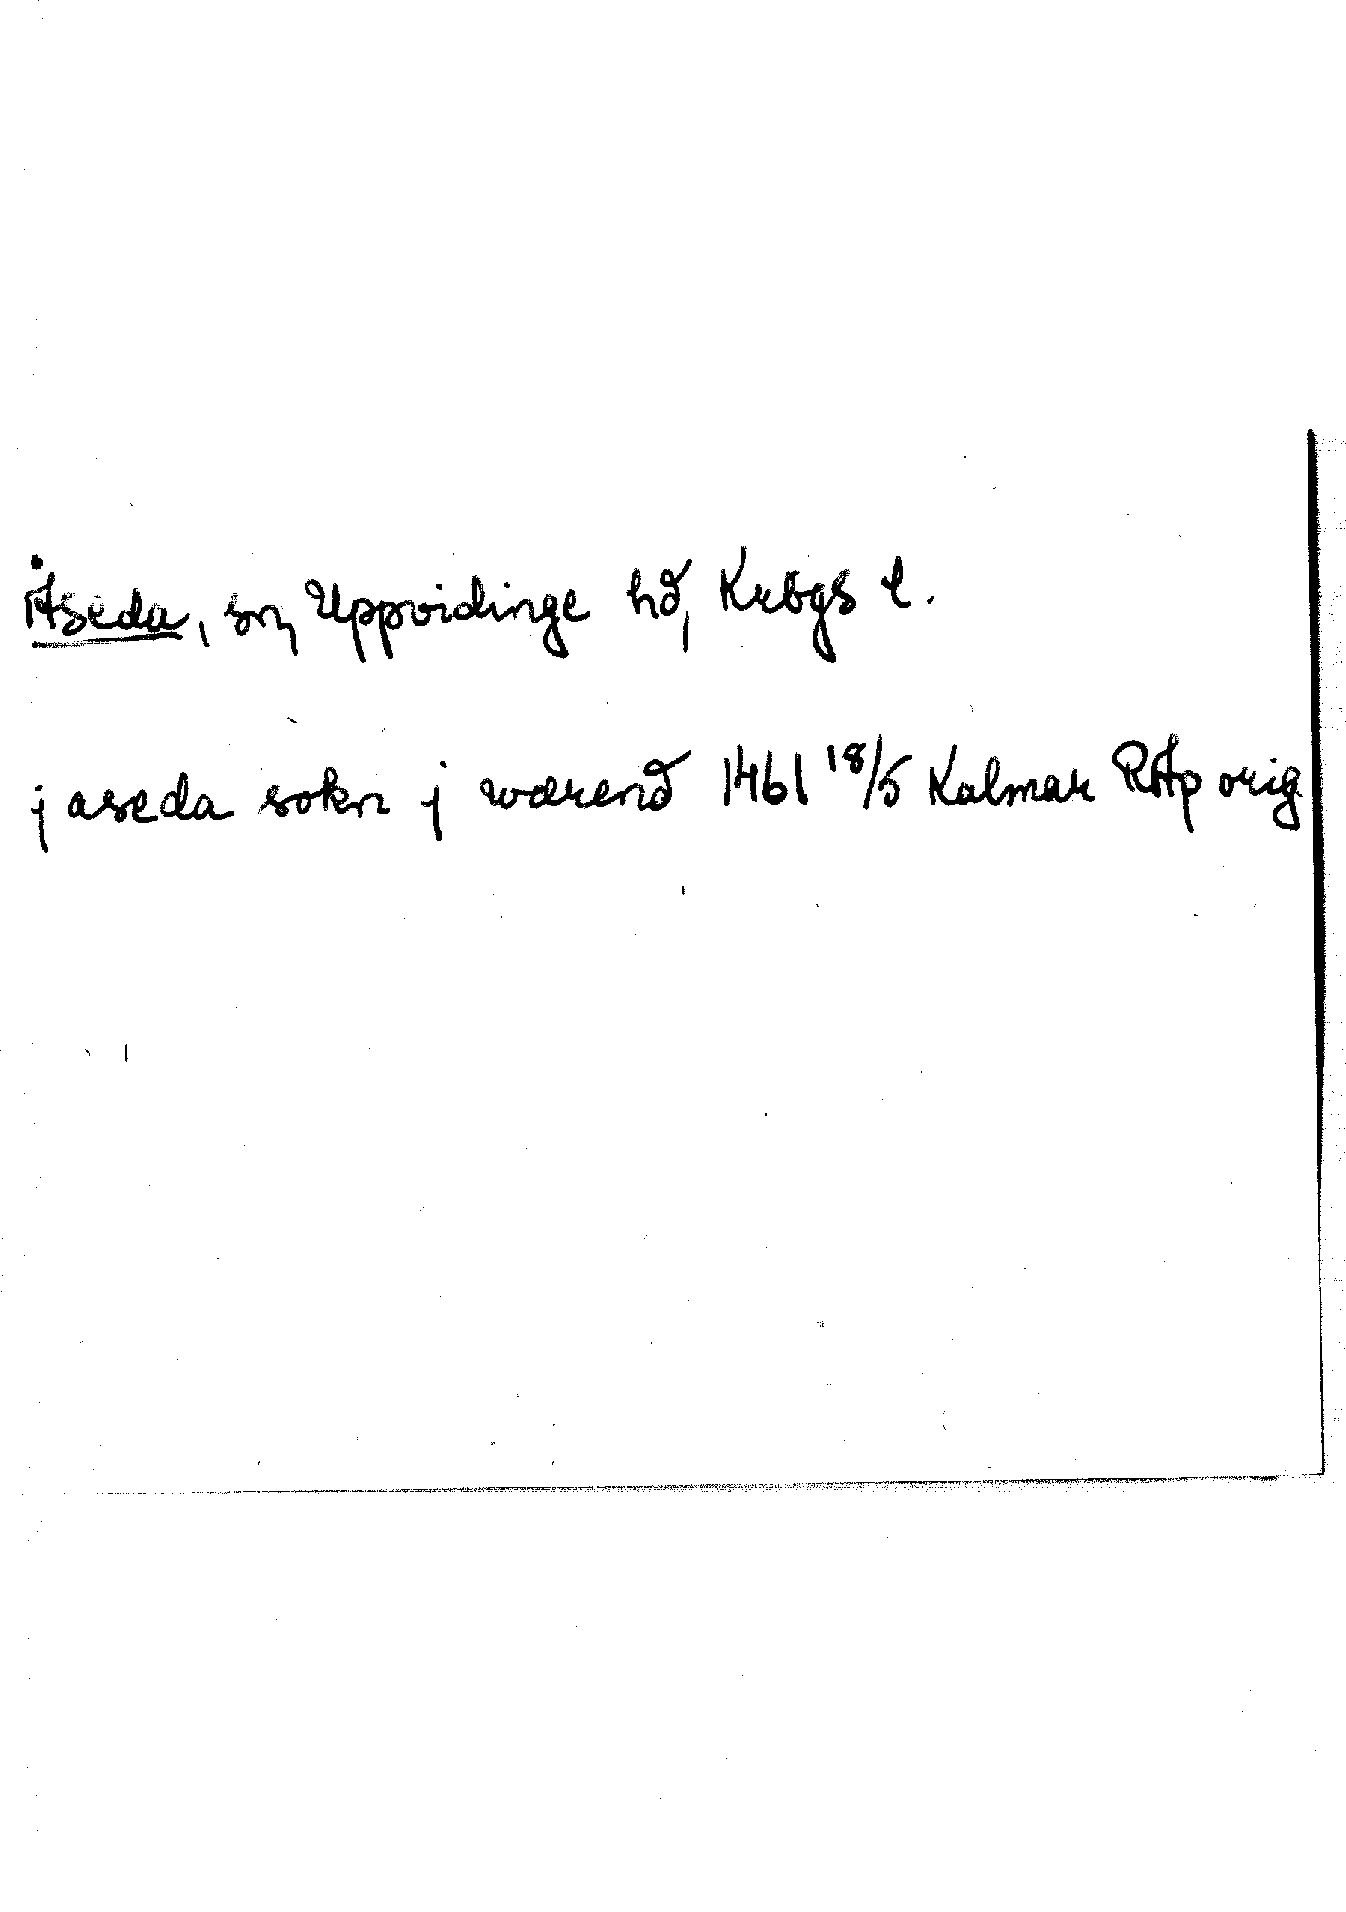 Åseda, sn, Uppvidinge hd, Krbgs l.
j aseda sokn j wærend 1461 18/5 Kalmar RAp orig